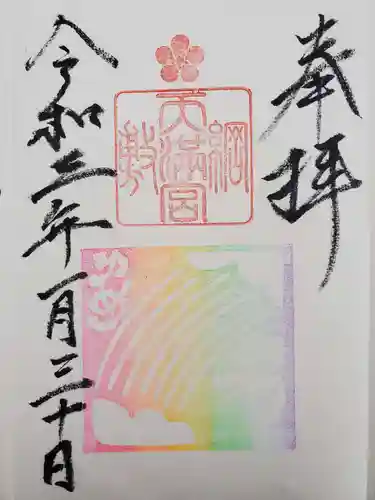 奉拝
綱敷天満宮
令和三年一月三十日